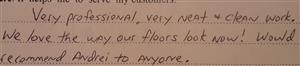 helps me to serve my customers.
Very professional, very neat & clean work.
We love the way our floors look now! Would
recommend Andrei to Anyone.